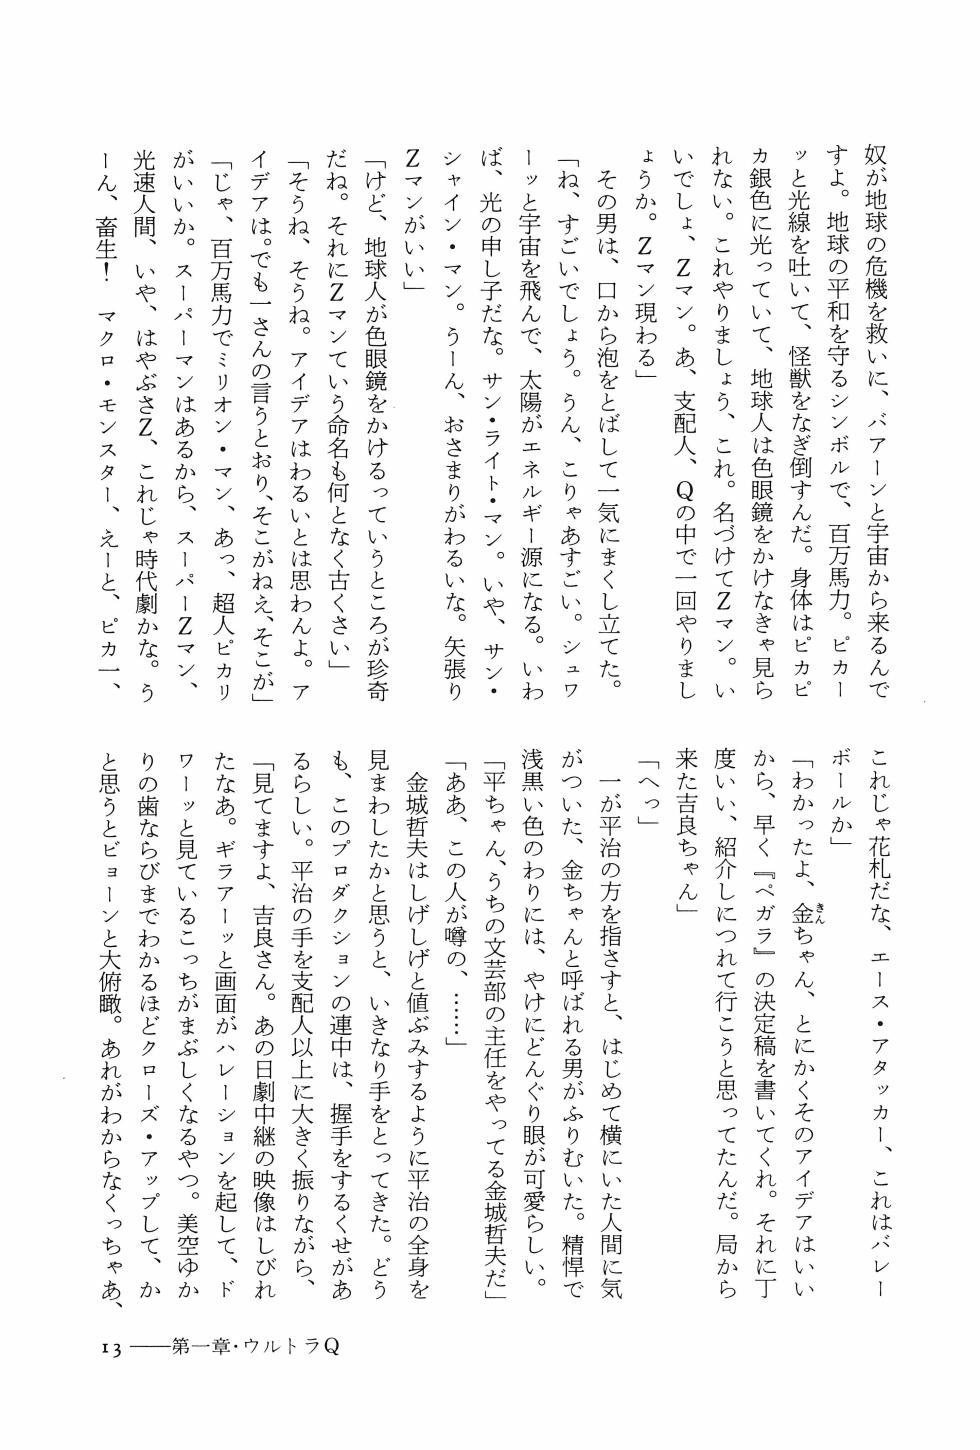 奴が地球の危機を救いに、バアーンと宇宙から来るんで
すよ。地球の平和を守るシンボルで、百万馬力。ピカー
ッと光線を吐いて、怪獣をなぎ倒すんだ。身体はピカピ
カ銀色に光っていて、地球人は色眼鏡をかけなきゃ見ら
れない。これやりましょう、これ。名づけてZマン。い
いでしょ、Zマン。あ、支配人、Qの中で一回やりまし
ょうか。Zマン現わる」
その男は、口から泡をとばして一気にまくし立てた。
「ね、すごいでしょう。うん、こりゃあすごい。シュワ
ーッと宇宙を飛んで、太陽がエネルギー源になる。いわ
ば、光の申し子だな。サン・ライト・マン。いや、サン・
シャイン・マン。うーん、おさまりがわるいな。矢張り
Zマンがいい」
「けど、地球人が色眼鏡をかけるっていうところが珍奇
だね。それにZマンていう命名も何となく古くさい」
「そうね、そうね。アイデアはわるいとは思わんよ。ア
イデアは。でも一さんの言うとおり、そこがねえ、そこが」
「じゃ、百万馬力でミリオン・マン、あっ、超人ピカリ
がいいか。スーパーマンはあるから、スーパーZマン、
光速人間、いや、はやぶさZ、これじゃ時代劇かな。う
ーん、畜生！　マクロ・モンスター、えーと、ピカ一、
これじゃ花札だな、エース・アタッカー、これはバレー
ボールか」
「わかったよ、金ちゃん、とにかくそのアイデアはいい
から、早く『ペガラ』の決定稿を書いてくれ。それに丁
度いい、紹介しにつれて行こうと思ってたんだ。局から
来た吉良ちゃん」
「へっ」
一が平治の方を指さすと、はじめて横にいた人間に気
がついた、金ちゃんと呼ばれる男がふりむいた。精悍で
浅黒い色のわりには、やけにどんぐり眼が可愛らしい。
「平ちゃん、うちの文芸部の主任をやってる金城哲夫だ」
「ああ、この人が噂の、……」
金城哲夫はしげしげと値ぶみするように平治の全身を
見まわしたかと思うと、いきなり手をとってきた。どう
も、このプロダクションの連中は、握手をするくせがあ
るらしい。平治の手を支配人以上に大きく振りながら、
「見てますよ、吉良さん。あの日劇中継の映像はしびれ
たなあ。ギラアーッと画面がハレーションを起して、ド
ワーッと見ているこっちがまぶしくなるやつ。美空ゆか
りの歯ならびまでわかるほどクローズ・アップして、か
と思うとビョーンと大俯瞰。あれがわからなくっちゃあ、
13――第一章・ウルトラQ